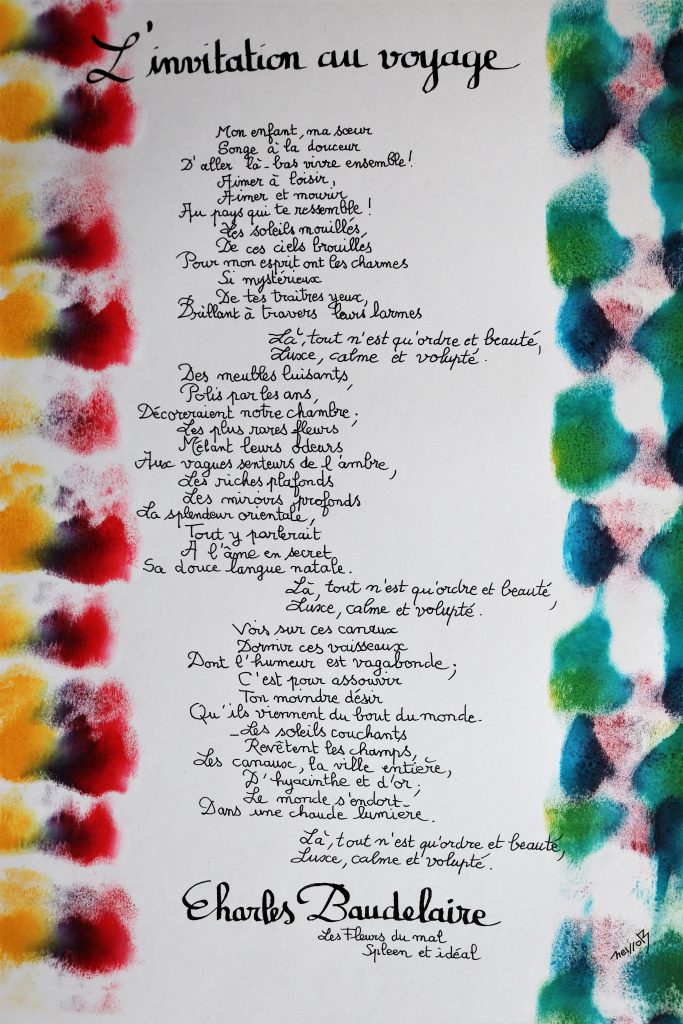 L'invitation au voyage
Mon enfant, ma sœur
Songe à la douceur
D'aller là-bas vivre ensemble!
Aimer à loisir,
Aimer et mourir
Au pays qui te ressemble!
Les soleils mouillés
De ces ciels brouillés
Pour mon esprit ont les charmes
Si mystérieux
De tes traîtres yeux,
Brillant à travers leurs larmes
Là, tout n'est qu'ordre et beauté,
Luxe, calme et volupté.
Des meubles luisants,
Polis par les ans,
Décoreraient notre chambre;
Les plus rares fleurs
Mêlant leurs odeurs
Aux vagues senteurs de l'ambre,
Les riches plafonds
Les miroirs profonds
La splendeur orientale,
Tout y parlerait
À l'âme en secret
Sa douce langue natale.
Là, tout n'est qu'ordre et beauté,
Luxe, calme et volupté.
Vois sur ces canaux
Dormir ces vaisseaux
Dont l'humeur est vagabonde;
C'est pour assouvir
Ton moindre désir
Qu'ils viennent du bout du monde.
_Les soleils couchants
Revêtent les champs,
Les canaux, la ville entière,
D'hyacinthe et d'or;
Le monde s'endort
Dans une chaude lumière.
Là, tout n'est qu'ordre et beauté,
Luxe, calme et volupté.
Charles Baudelaire
Les Fleurs du mal
Spleen et idéal